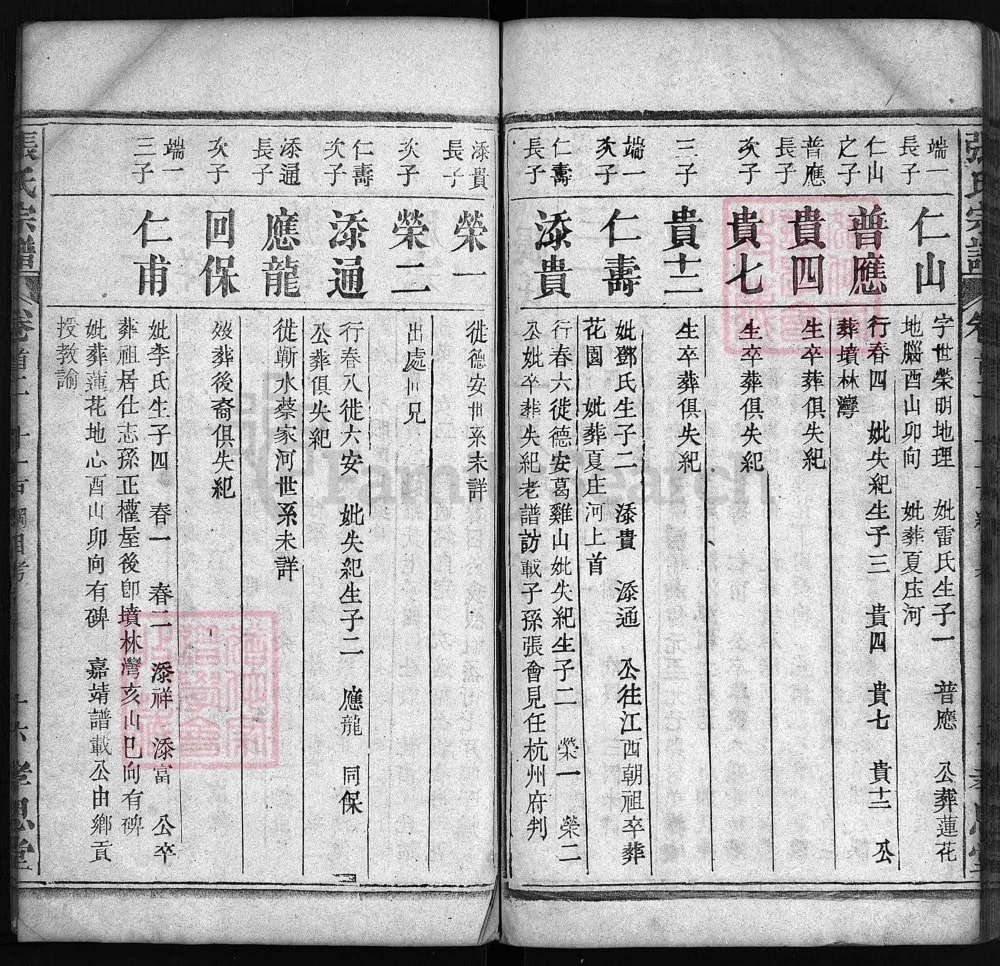 張氏宗譜
端一長子
仁山
字世榮明地理 妣雷氏生子一 普應 公葬蓮花
地腦酉山卯向 妣葬夏庄河
仁山之子
普應
行春四 妣失紀生子三 貴四 貴七 貴十二 公
葬墳林灣
普應長子
貴四
生卒葬俱失紀
次子
貴七
生卒葬俱失紀
三子
貴十二
生卒葬俱失紀
端一次子
仁壽
妣鄧氏生子二 添貴 添通 公往江西朝祖卒葬
花園 妣葬夏庄河上首
仁壽長子
添貴
行春六徙德安葛雞山妣失紀生子二 榮一 榮二
公妣卒葬失紀老譜訪載子孫張會見任杭州府判
添貴長子
榮一
徙德安世系未詳
次子
榮二
出處世兄
仁壽次子
添通
行春八徙六安 妣失紀生子二 應龍 同保
公葬俱失紀
添通長子
應龍
徙蘄水蔡家河世系未詳
次子
回保
娶葬後裔俱失紀
端一三子
仁甫
妣李氏生子四 春一 春二 添祥 添富 公卒
葬祖居仕志孫正權屋後卽墳林灣亥山巳向有碑
妣葬蓮花地心酉山卯向有碑 嘉靖譜載公由鄉貢
授教諭
張氏宗譜 卷首二 十六 孝思堂
FamilySearch